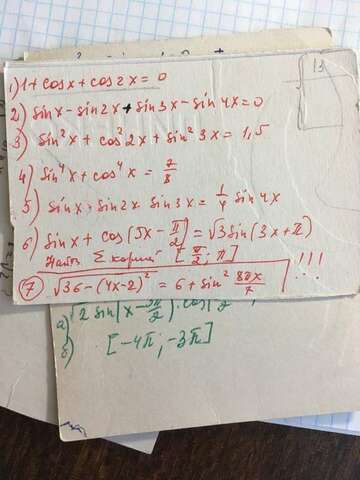 1) 1 + cosx + cos2x = 0
2) sinx - sin2x + sin3x - sin4x = 0
3) sin²x + cos²2x + sin²3x = 1,5
4) sin⁴x + cos⁴x = 7/8
5) sinx · sin2x · sin3x = 1/4 sin4x
6) sinx + cos(5x - π/2) = √3 sin(3x + π)
Найти Σ корней [π/2; π]
7) √36 - (4x-2)² = 6 + sin² 8πx/7 !!!
а) √2 sin(x - 3π/2) · cos
б) [-4π; -3π]
13